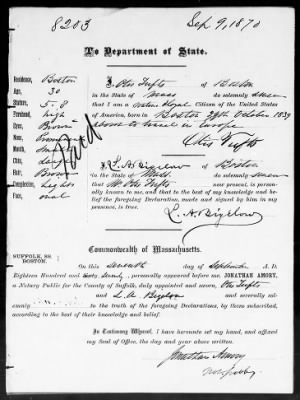 8203
Sep 9, 1870
To Department of State.
Residence, Boston
Age, 30
Stature, 5-8
Forehead, high
Eyes, Brown
Nose,
Mouth,
Chin,
Hair, Brown
Complexion, light
Face, oval
I, Otis Tufts of Boston
in the State of Mass do solemnly swear
that I am a native & loyal Citizen of the United States
of America, born in Boston 29th October 1839
about to travel in Europe
Otis Tufts
I, L. A. Bigelow of Boston
in the State of Mass. do solemnly swear
that Mr. Otis Tufts now present, is personally
known to me, and that to the best of my knowledge and belief
the foregoing Declaration, made and signed by him in my
presence, is true.
L. A. Bigelow
Commonwealth of Massachusetts.
SUFFOLK, SS.
BOSTON.
On this seventh day of September A. D.
Eighteen Hundred and Seventy, personally appeared before me, JONATHAN AMORY,
a Notary Public for the County of Suffolk, duly appointed and sworn, Otis Tufts
and L. A. Bigelow and severally
to the truth of the foregoing Declarations, by them subscribed,
according to the best of their knowledge and belief.
In Testimony Whereof, I have hereunto set my hand, and affixed
my Seal of Office, the day and year above written.
Jonathan Amory